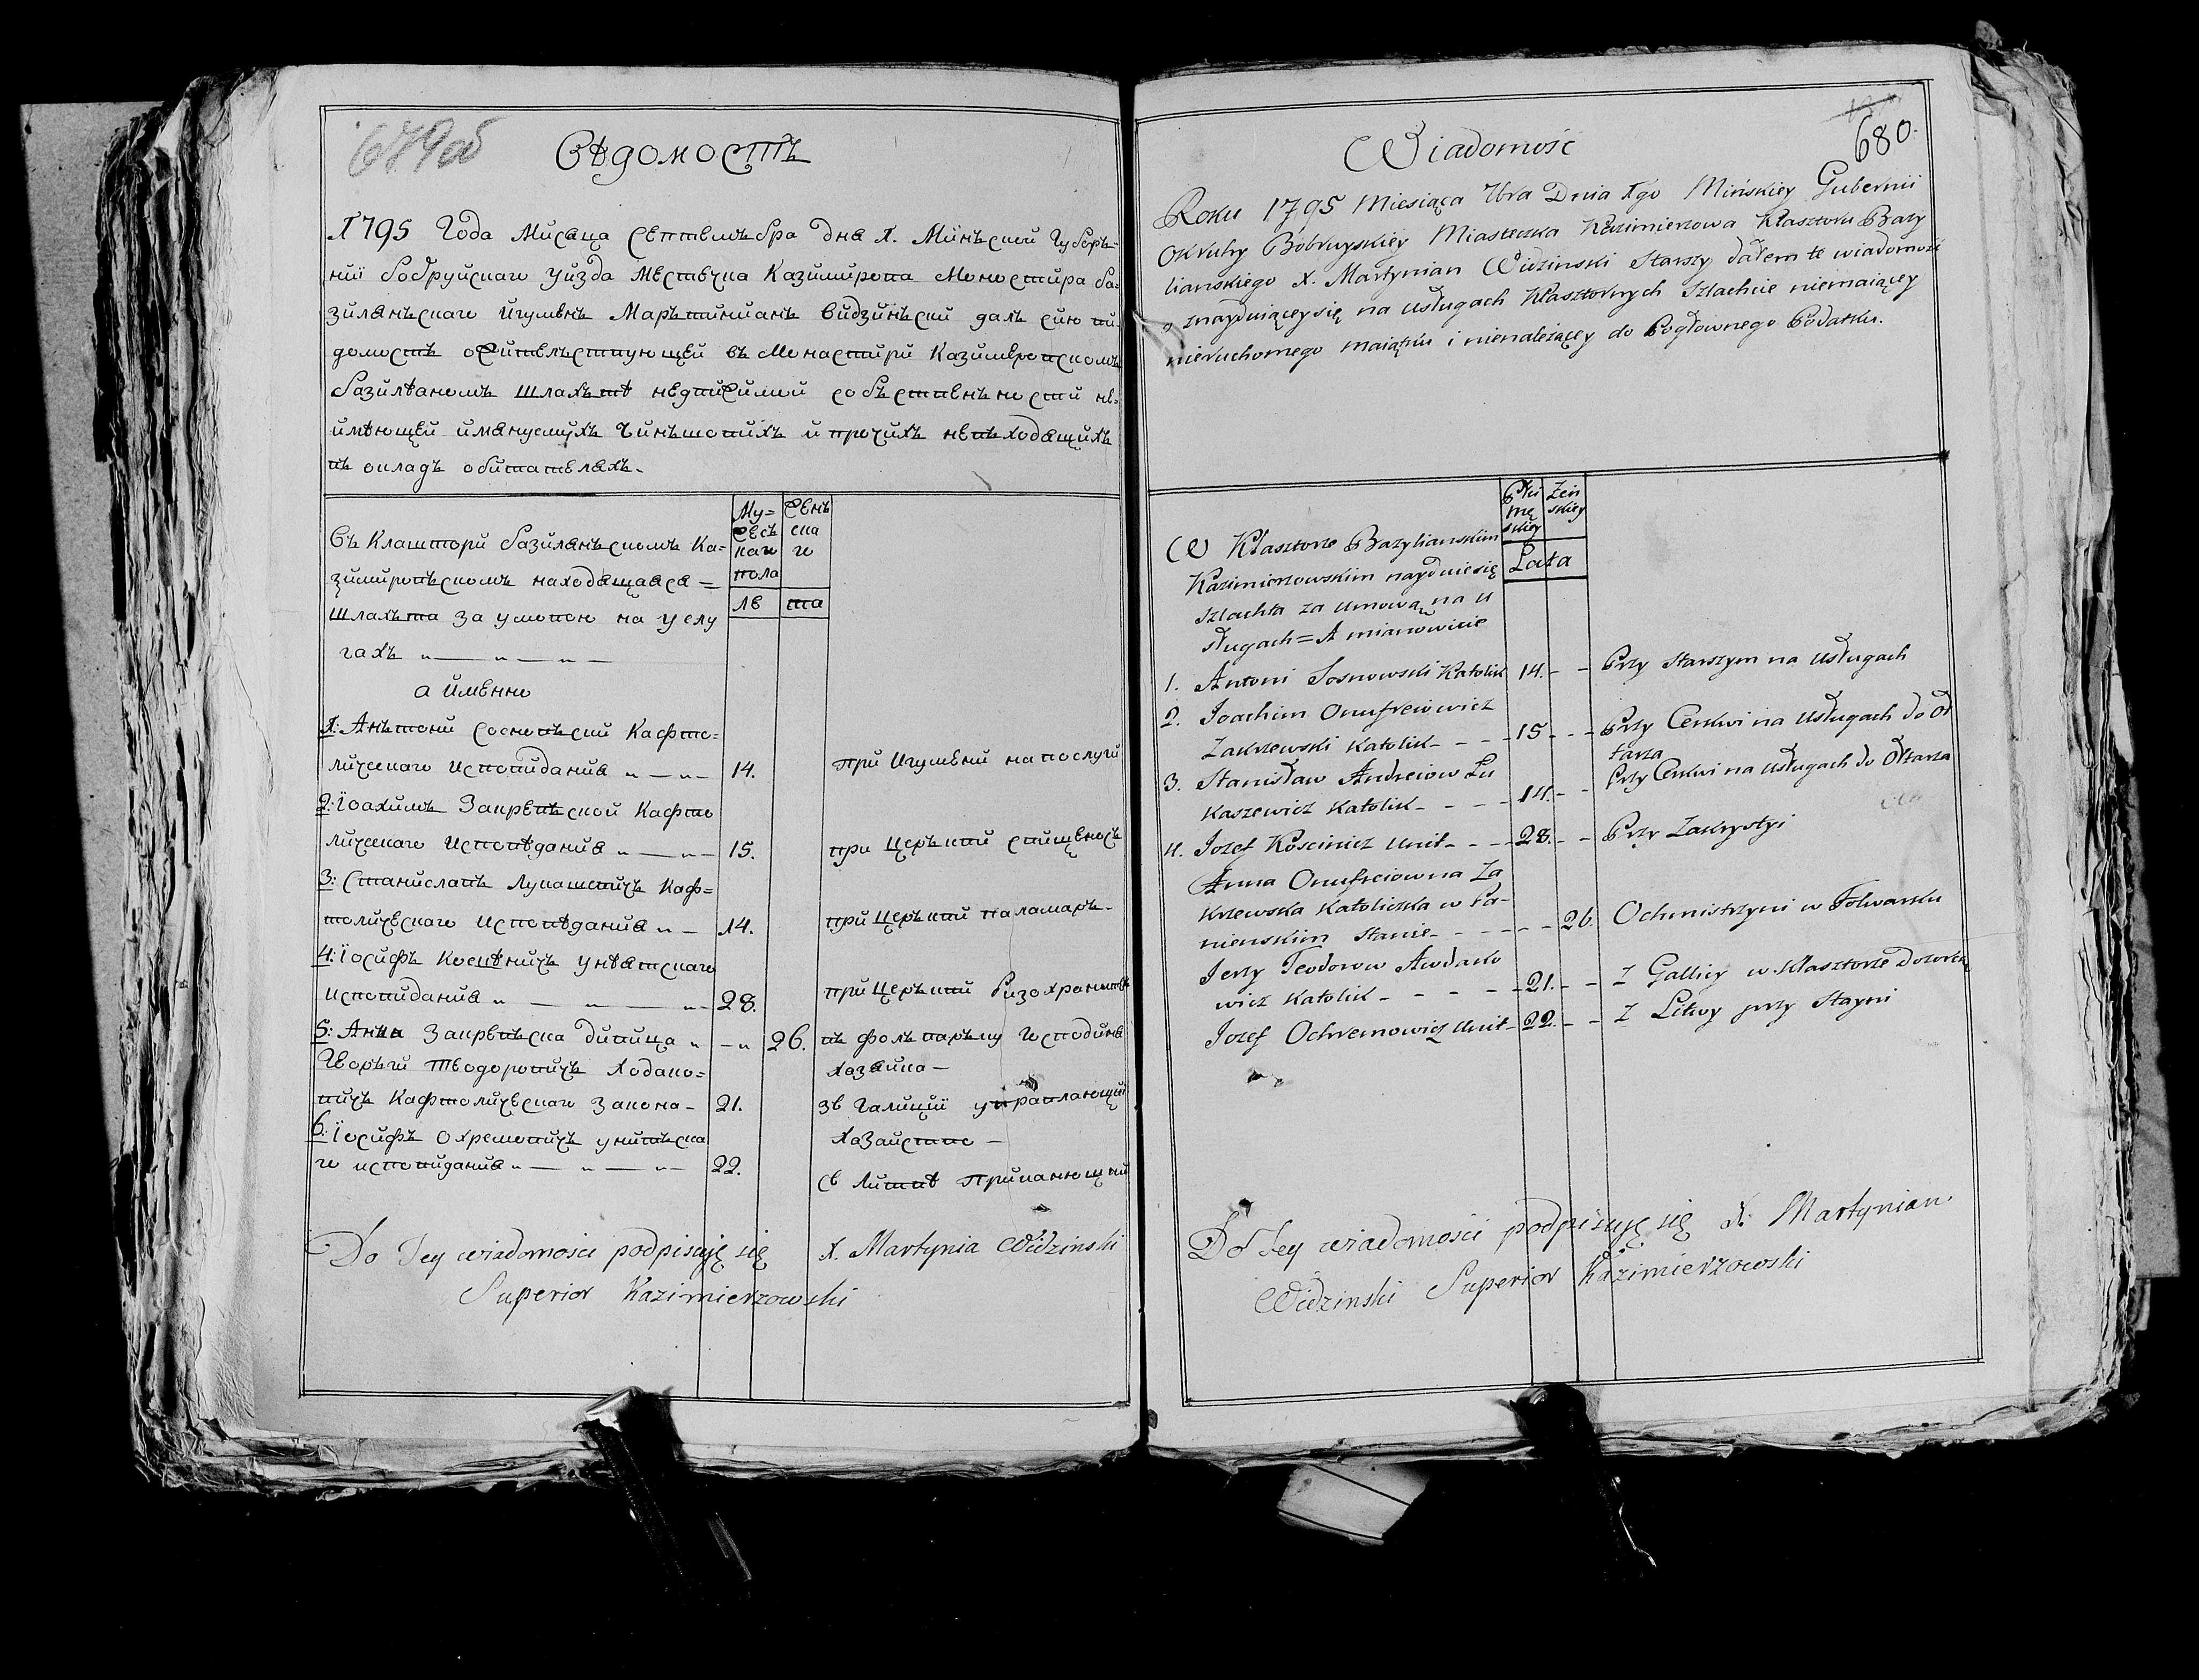 679об
Вѣдомостъ
1795 Года Мйсяца Септемъбра дня 1. Мйнъской Губеръ=
нйї Бобруйскаго Уйзда Местечка Казимйрова Монастйра Ба=
зйлянъскаго Йгуменъ Маръвйнйанъ Вйдзйнъскй далъ сйю вй=
домостъ ожйтелъствующей въ Монастйрй Казимеровскомъ
Базйлѣаномъ шлахътѣ недвйжймой собъственъностй не=
ймѣющей Чйнъшовйхъ й прочйхъ невъходящйхъ
въ окладъ обйтателяхъ.
Въ Клашторй Базйлянъскомъ Ка=
зймйровъскомъ находящаяся =
шлахъта за умовою на услу
гахъ
а йменно
Му=
жесъ
каго
пола
Женъ
ска
го
ле
та
1: Анътонй Сосновъскй Кафто=
лйческаго Исповйданйя 14. прй Игуменй на послугй
2: Їоахймъ Закревъской Кафто
лйческаго Исповѣданйя 15. прй Церъквй
3: Станйславъ Лукашевйчъ Каф=
толйческаго Исповѣданйя 14. прй Церъквй паламаръ
4: Їосйфъ Косцѣнйчъ унѣатскаго
Исповйданйя 28. прй Церъквй
5: Анна Закревъска дйвйца 26. въ фолъваръку Господйня
хазяйка
Георъгй Теодоровйчъ Ходако=
вйчъ Кафтолйческаго Закона 21. зъ Галйцйї управлающй
хазайство
6: Їосйфъ Охремовйчъ унйтъска
го исповйданйя 22. съ Лйтвѣ
Do Tey wiadomosci podpisuję się X. Martynia Widzinski
Superior Kazimierzowski
680.
Wiadomość
Roku 1795 Miesiąca 7bra Dnia 1go Mińskiey Gubernii
Okruhy Bobruyskiey Miasteczka Kazimierzowa Klasztoru Bazy
lianskiego X. Martynian Widzinski Starszy dałem te wiadomość
o znayduiącey się na usługach Klasztornych Szlachcie niemaiącey
nieruchomego maiątku i nienależącey do Pogłownego Podatku.
W Klasztorze Bazylianskim
Kazimierzowskim nayduie się
Szlachta za umową na u
sługach = A mianowicie
Płci
mę
skiey
Żeń
skiey
Lata
1. Antoni Sosnowski Katolik 14. Przy Starszym na usługach
2. Joachim Onufreiowicz
Zakrzewski Katolik 15 Przy Cerkwi na usługach do Oł
tarza
3. Stanisław Andreiow Łu
kaszewicz Katolik 14. Przy Cerkwi na usługach do Ołtarza
4. Jozef Koscinicz Unit 28. Przy Zakrystyi
Anna Onufreiowna Za
krzewska Katoliczka w Pa-
nienskim stanie 26. Ochmistrzyni w Folwarku
Jerzy Teodorow
wicz Katolik 21. Z Gallicy w Klasztorze
Jozef Ochremowicz Unit 22. Z Litwy przy Stayni
Do Tey wiadomosci podpisuję się X. Martynian
Widzinski Superior Kazimierzowski